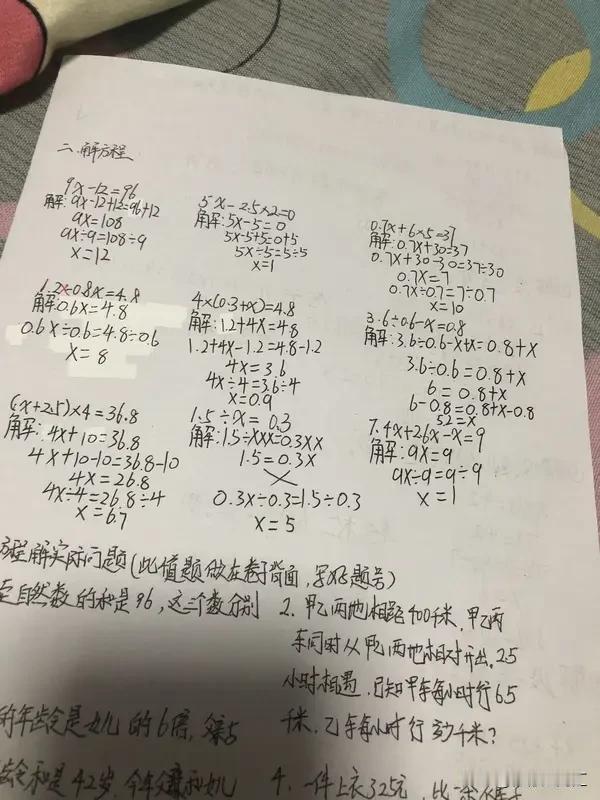 二、解方程
9x-12=96
解:9x-12+12=96+12
9x=108
9x÷9=108÷9
x=12
5x-2.5×2=0
解:5x-5=0
5x-5+5=0+5
5x÷5=5÷5
x=1
0.7x+6×5=37
解:0.7x+30=37
0.7x+30-30=37-30
0.7x=7
0.7x÷0.7=7÷0.7
x=10
1.2x-0.8x=4.8
解:0.6x=4.8
0.6x÷0.6=4.8÷0.6
x=8
4×(0.3+x)=4.8
解:1.2+4x=4.8
1.2+4x-1.2=4.8-1.2
4x=3.6
4x÷4=3.6÷4
x=0.9
3.6÷0.6-x=0.8
解:3.6÷0.6-x+x=0.8+x
3.6÷0.6=0.8+x
6=0.8+x
6-0.8=0.8+x-0.8
5.2=x
(x+2.5)×4=36.8
解:4x+10=36.8
4x+10-10=36.8-10
4x=26.8
4x÷4=26.8÷4
x=6.7
1.5÷x=0.3
解:1.5÷x×x=0.3×x
1.5=0.3x
0.3x÷0.3=1.5÷0.3
x=5
7.4x+2.6x-x=9
解:9x=9
9x÷9=9÷9
x=1
方程解实际问题(此值题做在卷子背面,写好题号)
自然数的和是96,这三个数分别
2.甲乙两地相距400千米,甲乙两
车同时从甲乙两地相对开出,2.5
小时相遇,已知甲车每小时行65
千米,乙车每小时行多少千米?
的年龄是女儿的6倍,父亲与
龄和是42岁,今年父亲和女儿
4.一件上衣325元,比一条